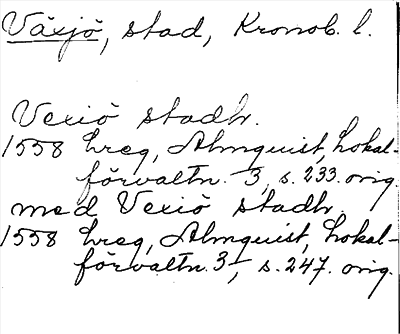 Växjö, stad, Kronob. l.
Vexiö stadh.
1558 hreg, Almquist, Lokal-
förvaltn. 3, s. 233. orig.
med Vexiö stadh.
1558 hreg, Almquist, Lokal-
förvaltn. 3, s. 247. orig.